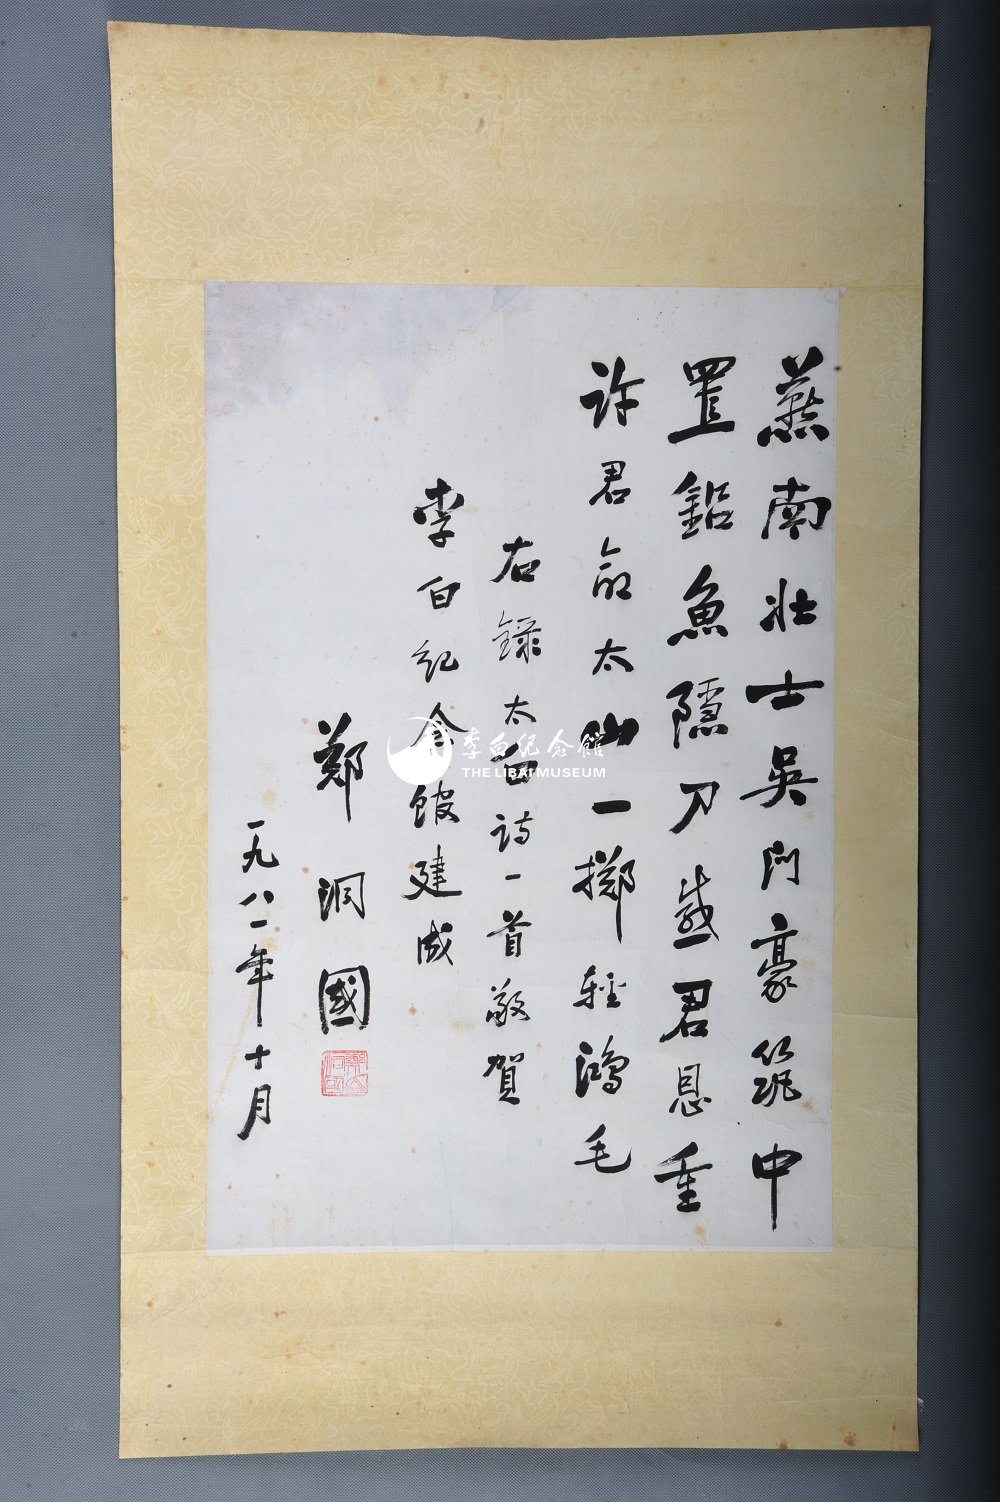 燕南壮士吳门豪筑中
置鉛魚隱刀感君恩重
许君命太山一掷輕鴻毛
右録太白诗一首敬賀
李白纪念馆建成
鄭洞國
一九八一年十月
李白纪念館
THE LIBAI MUSEUM